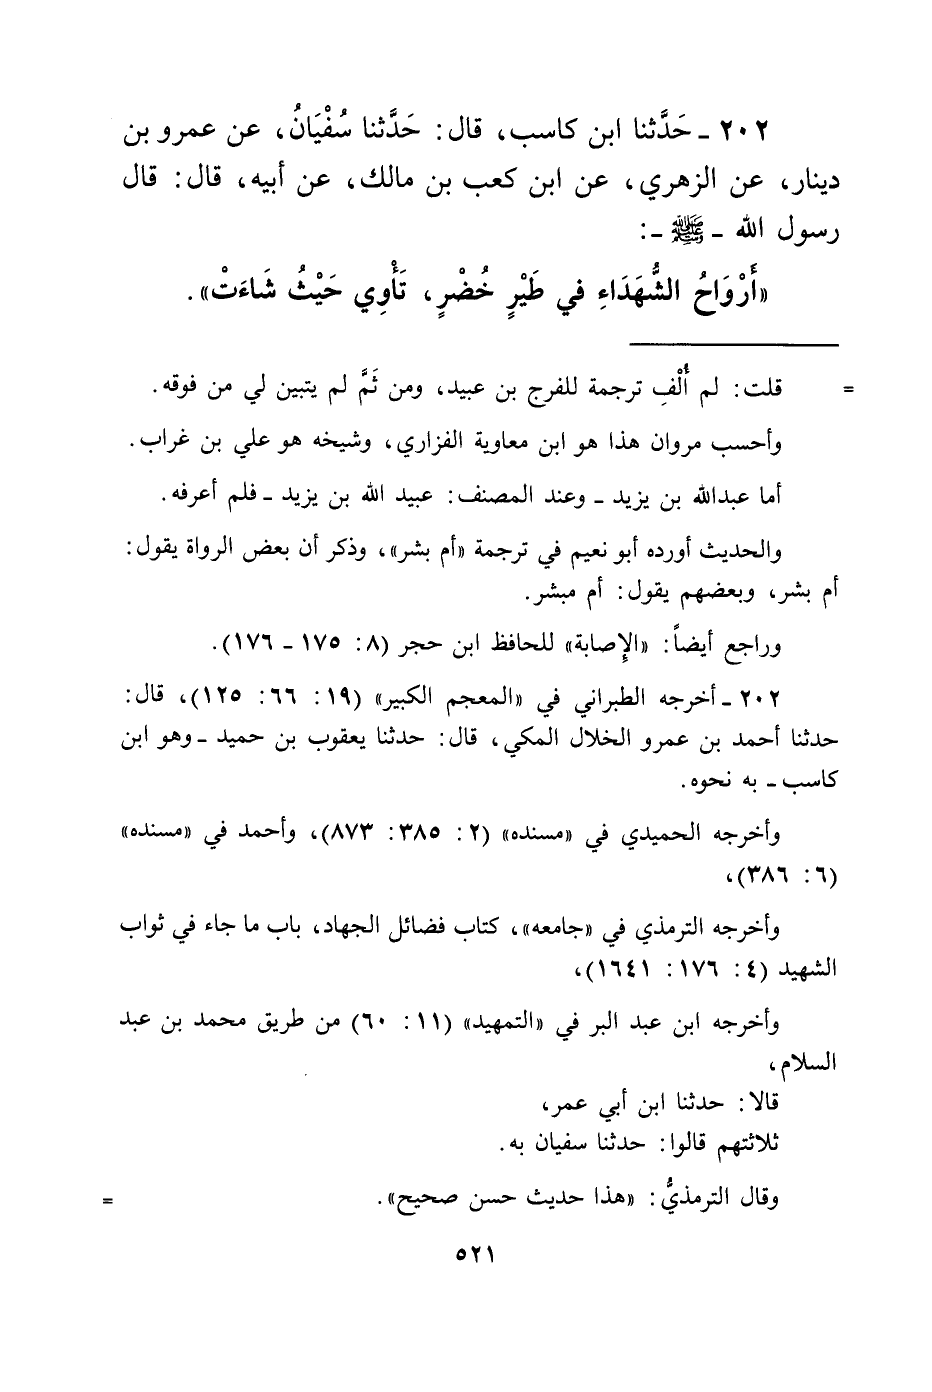 ٢٠٢ ـ حَدَّثنا ابن كاسب، قال: حَدَّثنا سُفْيَانُ، عن عمرو بن
دينار، عن الزهري، عن ابن كعب بن مالك، عن أبيه، قال: قال
رسول الله ـ ﷺ ـ:
«أَرْوَاحُ الشُّهَدَاءِ في طَيْرٍ خُضْرٍ، تَأْوِي حَيْثُ شَاءَتْ».
= قلت: لم أُلْفِ ترجمة للفرج بن عبيد، ومن ثَمَّ لم يتبين لي من فوقه.
وأحسب مروان هذا هو ابن معاوية الفزاري، وشيخه هو علي بن غراب.
أما عبدالله بن يزيد ـ وعند المصنف: عبيد الله بن يزيد ـ فلم أعرفه.
والحديث أورده أبو نعيم في ترجمة «أم بشر»، وذكر أن بعض الرواة يقول:
أم بشر، وبعضهم يقول: أم مبشر.
وراجع أيضاً: «الإصابة» للحافظ ابن حجر (٨: ١٧٥ ـ ١٧٦).
٢٠٢ ـ أخرجه الطبراني في «المعجم الكبير» (١٩: ٦٦: ١٢٥)، قال:
حدثنا أحمد بن عمرو الخلال المكي، قال: حدثنا يعقوب بن حميد ـ وهو ابن
كاسب ـ به نحوه.
وأخرجه الحميدي في «مسنده» (٢: ٣٨٥: ٨٧٣)، وأحمد في «مسنده»
(٦: ٣٨٦)،
وأخرجه الترمذي في «جامعه»، كتاب فضائل الجهاد، باب ما جاء في ثواب
الشهيد (٤: ١٧٦: ١٦٤١)،
وأخرجه ابن عبد البر في «التمهيد» (١١: ٦٠) من طريق محمد بن عبد
السلام،
قالا: حدثنا ابن أبي عمر،
ثلاثتهم قالوا: حدثنا سفيان به.
وقال الترمذيُّ: «هذا حديث حسن صحيح». =
٥٢١